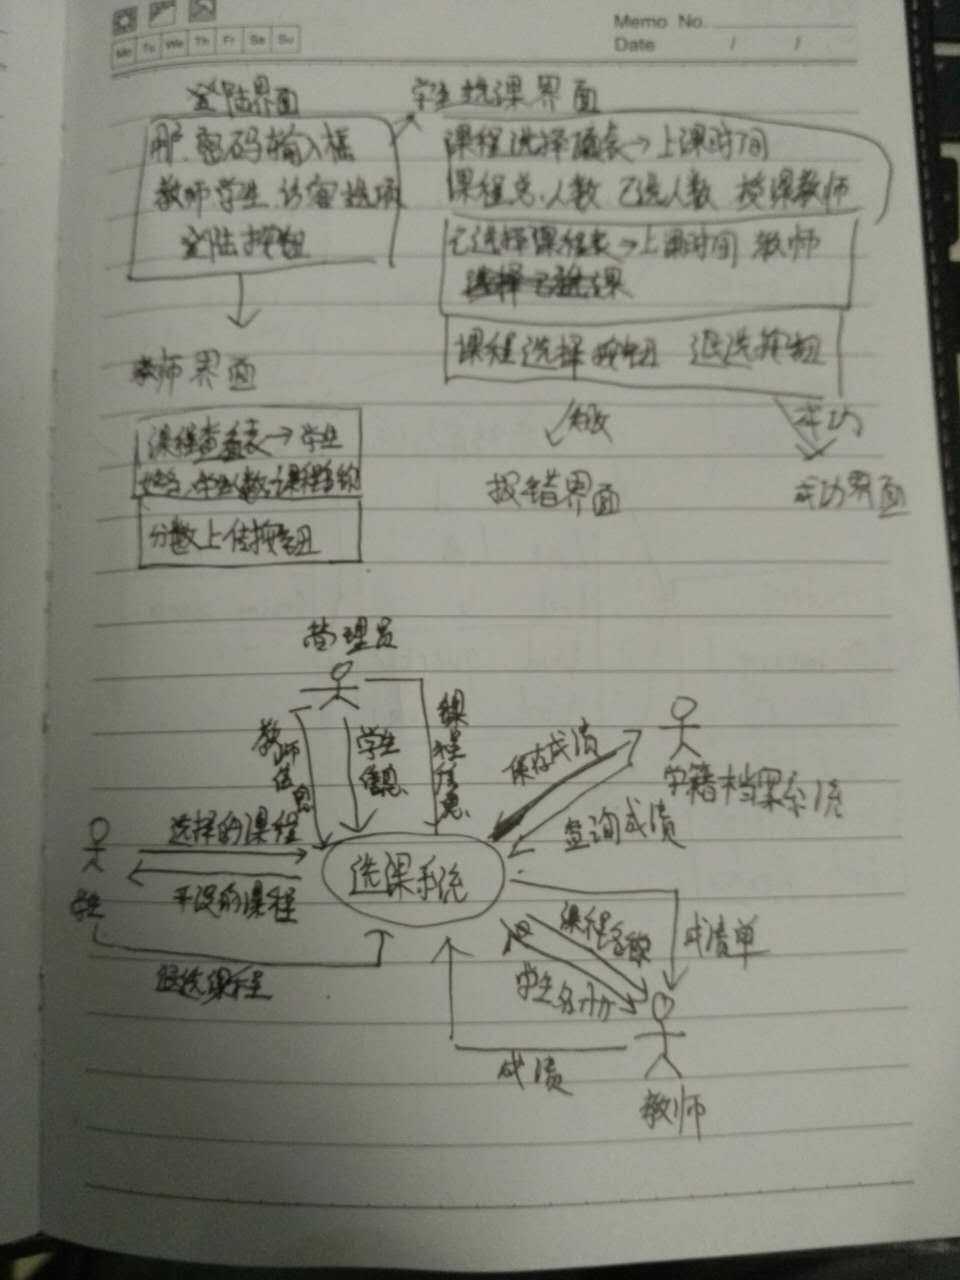 Memo No.
Date / /
Mo Tu We Th Fr Sa Su
登陆界面
学生选课界面
密码输入框
教师学生、访客选项
登陆按钮
课程选择 →上课时间
课程总人数 已选人数 授课教师
已选择课程表→上课时间 教师
课程选择按钮 退选按钮
教师界面
失败
成功
报错界面
成功界面
课程查看表→学生
姓名、学生人数、课程名称
分数上传按钮
管理员
教师信息
学生信息
课程信息
保存成绩
查询成绩
学籍档案系统
选择的课程
开设的课程
学生
选课系统
退选课程
课程名称
学生名单
成绩单
成绩
教师